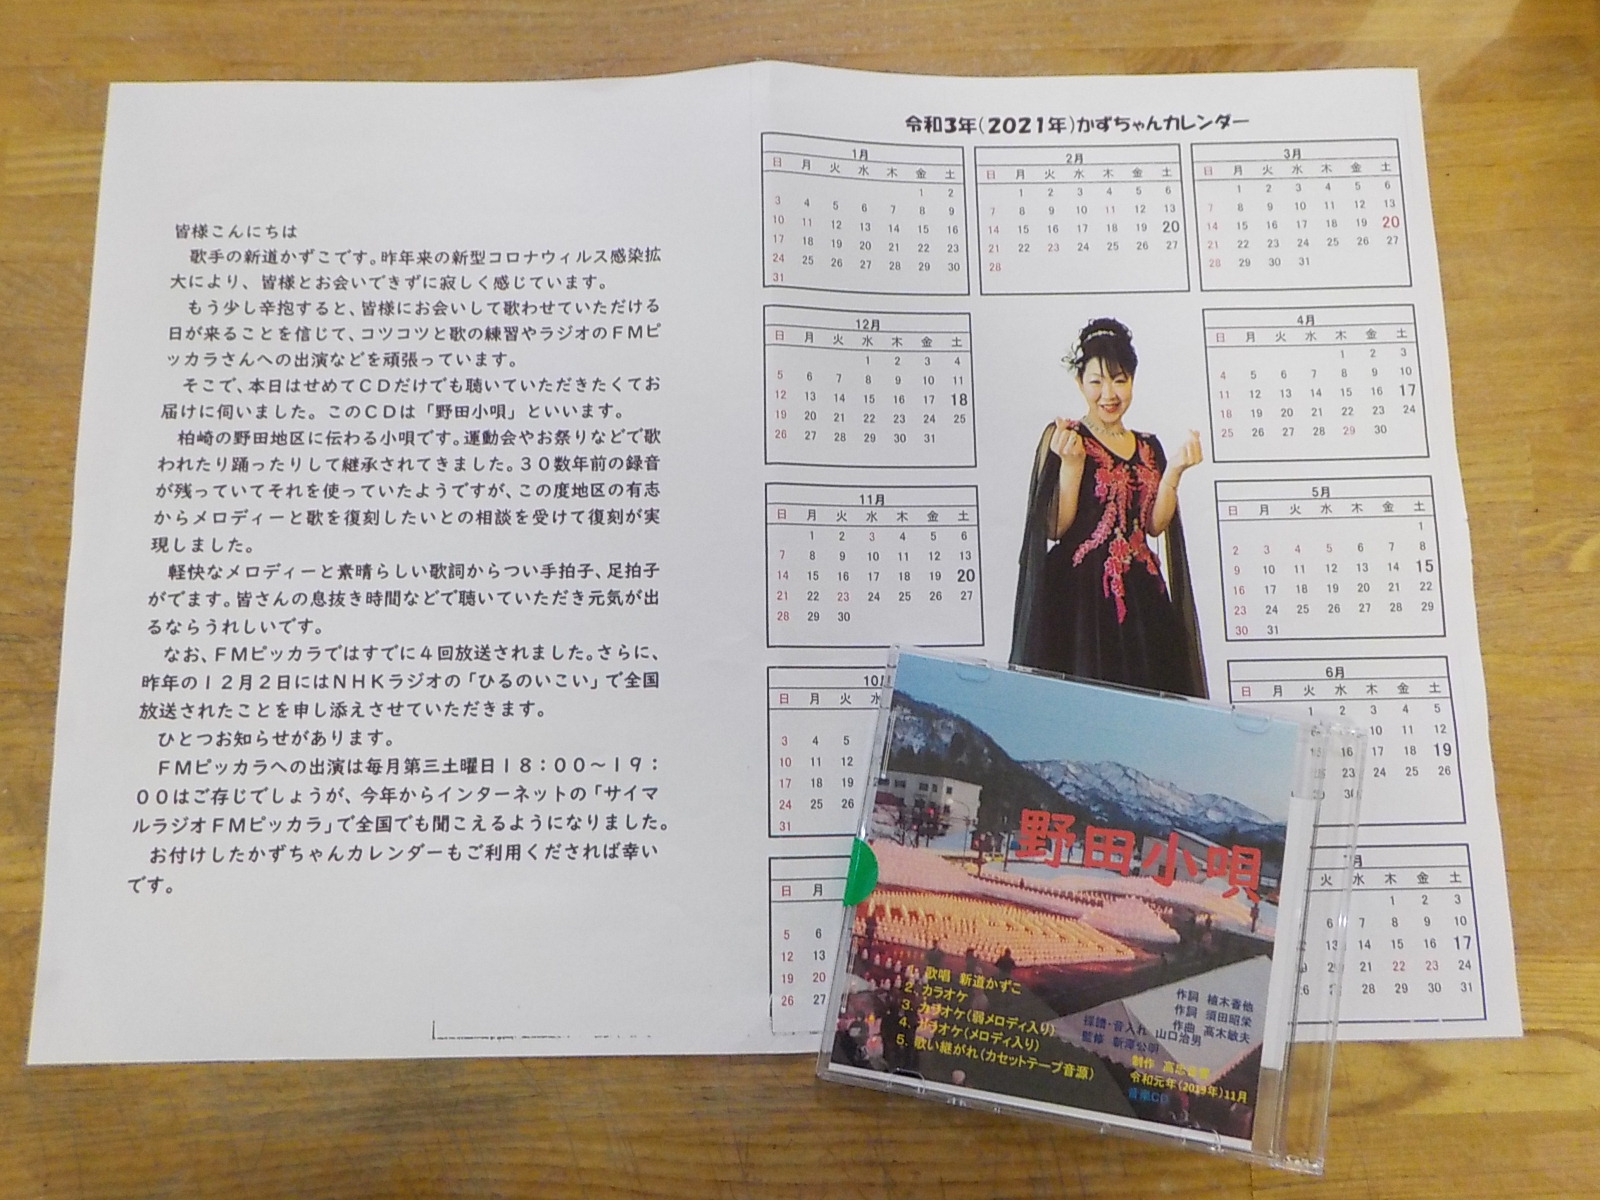 皆様こんにちは
歌手の新道かずこです。昨年来の新型コロナウィルス感染拡
大により、皆様とお会いできずに寂しく感じています。
もう少し辛抱すると、皆様にお会いして歌わせていただける
日が来ることを信じて、コツコツと歌の練習やラジオのFMピ
ッカラさんへの出演などを頑張っています。
そこで、本日はせめてCDだけでも聴いていただきたくてお
届けに伺いました。このCDは「野田小唄」といいます。
柏崎の野田地区に伝わる小唄です。運動会やお祭りなどで歌
われたり踊ったりして継承されてきました。30数年前の録音
が残っていてそれを使っていたようですが、この度地区の有志
からメロディーと歌を復刻したいとの相談を受けて復刻が実
現しました。
軽快なメロディーと素晴らしい歌詞からつい手拍子、足拍子
がでます。皆さんの息抜き時間などで聴いていただき元気が出
るならうれしいです。
なお、FMピッカラではすでに4回放送されました。さらに、
昨年の12月2日にはNHKラジオの「ひるのいこい」で全国
放送されたことを申し添えさせていただきます。
ひとつお知らせがあります。
FMピッカラへの出演は毎月第三土曜日18:00〜19:
00はご存じでしょうが、今年からインターネットの「サイマ
ルラジオFMピッカラ」で全国でも聞こえるようになりました。
お付けしたかずちゃんカレンダーもご利用くだされば幸い
です。
令和3年(2021年)かずちゃんカレンダー
1月
日 月 火 水 木 金 土
1 2
3 4 5 6 7 8 9
10 11 12 13 14 15 16
17 18 19 20 21 22 23
24 25 26 27 28 29 30
31
2月
日 月 火 水 木 金 土
1 2 3 4 5 6
7 8 9 10 11 12 13
14 15 16 17 18 19 20
21 22 23 24 25 26 27
28
3月
日 月 火 水 木 金 土
1 2 3 4 5 6
7 8 9 10 11 12 13
14 15 16 17 18 19 20
21 22 23 24 25 26 27
28 29 30 31
12月
日 月 火 水 木 金 土
1 2 3 4
5 6 7 8 9 10 11
12 13 14 15 16 17 18
19 20 21 22 23 24 25
26 27 28 29 30 31
4月
日 月 火 水 木 金 土
1 2 3
4 5 6 7 8 9 10
11 12 13 14 15 16 17
18 19 20 21 22 23 24
25 26 27 28 29 30
11月
日 月 火 水 木 金 土
1 2 3 4 5 6
7 8 9 10 11 12 13
14 15 16 17 18 19 20
21 22 23 24 25 26 27
28 29 30
5月
日 月 火 水 木 金 土
1
2 3 4 5 6 7 8
9 10 11 12 13 14 15
16 17 18 19 20 21 22
23 24 25 26 27 28 29
30 31
10月
日 月 火 水
3 4 5
10 11 12
17 18 19
24 25 26
31
6月
日 月 火 水 木 金 土
1 2 3 4 5
10 11 12
16 17 18 19
23 24 25 26
30
日 月
5 6
12 13
19 20
26 27
月
火 水 木 金 土
1 2 3
6 7 8 9 10
13 14 15 16 17
21 22 23 24
28 29 30 31
野田小唄
1. 歌唱 新道かずこ
2. カラオケ
3. カラオケ(弱メロディ入り)
4. カラオケ(メロディ入り)
5. 歌い継がれ(カセットテープ音源)
作詞 植木香他
作詞 須田昭栄
作曲 高木敏夫
採譜・音入れ 山口治男
監修 新澤公明
制作
令和元年(2019年)11月
音楽CD